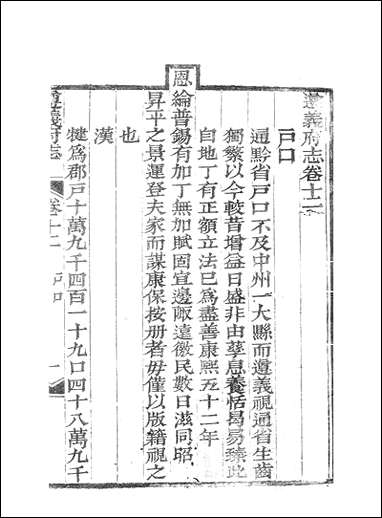 遵義府志卷十二
戸口
通黔省戸口不及中州一大縣而遵義視通省生齒
獨繁以今較昔增益日盛非由孳息養恬曷易臻此
自地丁有正額立法已爲盡善康熙五十二年
恩綸普錫有加丁無加賦固宜邊陬遠徼民數日滋同昭
昇平之景運登夫家而謀康保按册者毋僅以版籍視之
也
漢
犍爲郡戸十萬九千四百一十九口四十八萬九千
遵義府志
卷十二
戸口
一